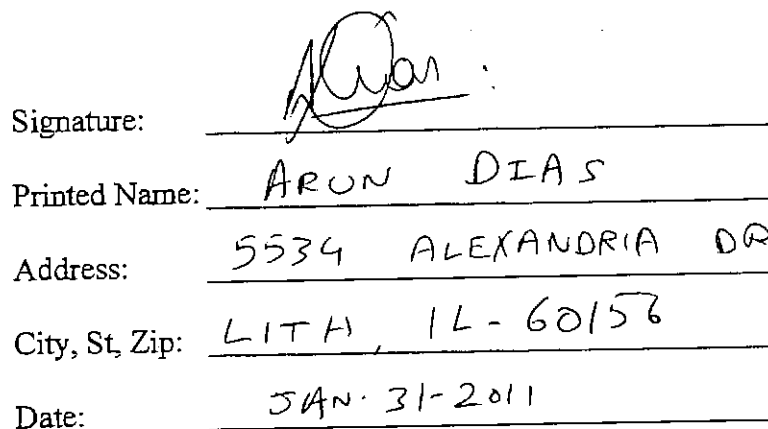 Signature:
Printed Name: ARUN DIAS
Address: 5534 ALEXANDRIA DR
City, St, Zip: LITH, IL - 60156
Date: JAN. 31-2011